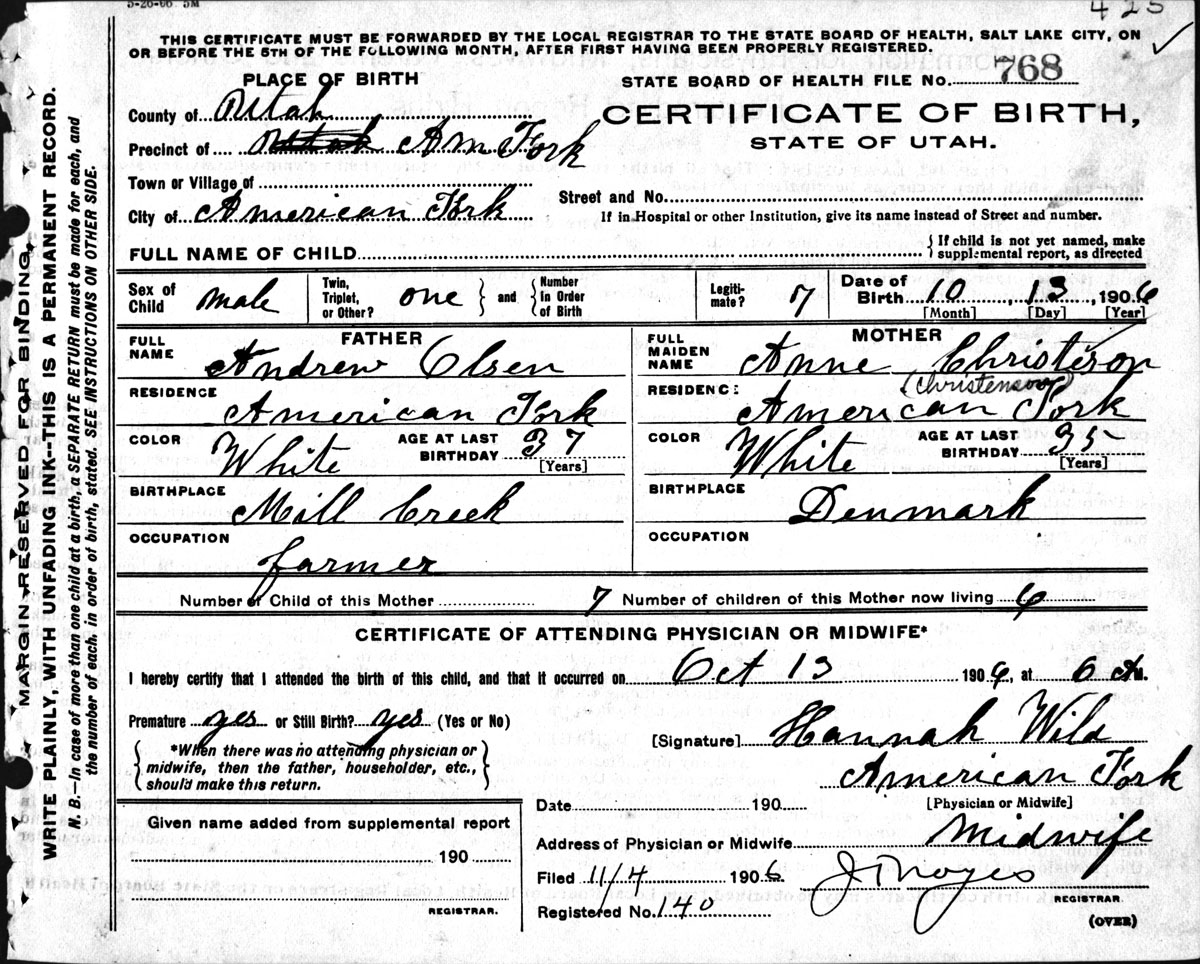 5-26-06 5M
425
THIS CERTIFICATE MUST BE FORWARDED BY THE LOCAL REGISTRAR TO THE STATE BOARD OF HEALTH, SALT LAKE CITY, ON
OR BEFORE THE 5TH OF THE FOLLOWING MONTH, AFTER FIRST HAVING BEEN PROPERLY REGISTERED.
PLACE OF BIRTH
STATE BOARD OF HEALTH FILE No. 768
County of Utah
CERTIFICATE OF BIRTH,
Precinct of Utah Am Fork
STATE OF UTAH.
Town or Village of
Street and No.
City of American Fork
If in Hospital or other Institution, give its name instead of Street and number.
FULL NAME OF CHILD
{If child is not yet named, make
supplemental report, as directed
Sex of Child male
Twin, Triplet, or Other? one } and { Number In Order of Birth
Legiti-mate? 7
Date of Birth 10 13, 1906
[Month] [Day] [Year]
FATHER
FULL NAME Andrew Olsen
RESIDENCE American Fork
COLOR White AGE AT LAST BIRTHDAY 37
[Years]
BIRTHPLACE Mill Creek
OCCUPATION farmer
MOTHER
FULL MAIDEN NAME Anne Christison
(Christenson)
RESIDENCE American Fork
COLOR White AGE AT LAST BIRTHDAY 35
[Years]
BIRTHPLACE Denmark
OCCUPATION
Number of Child of this Mother 7 Number of children of this Mother now living 6
CERTIFICATE OF ATTENDING PHYSICIAN OR MIDWIFE*
I hereby certify that I attended the birth of this child, and that it occurred on Oct 13 1906, at 6 AM.
Premature yes or Still Birth? yes (Yes or No)
[Signature] Hannah Wild
{*When there was no attending physician or
midwife, then the father, householder, etc.,
should make this return.}
American Fork
[Physician or Midwife]
Date 190
Given name added from supplemental report
190
REGISTRAR.
Address of Physician or Midwife Midwife
Filed 11/4 1906 J T Noyes
REGISTRAR.
Registered No. 140
(OVER)
MARGIN RESERVED FOR BINDING.
WRITE PLAINLY, WITH UNFADING INK--THIS IS A PERMANENT RECORD.
N. B.—In case of more than one child at a birth, a SEPARATE RETURN must be made for each, and
the number of each. in order of birth, stated. SEE INSTRUCTIONS ON OTHER SIDE.